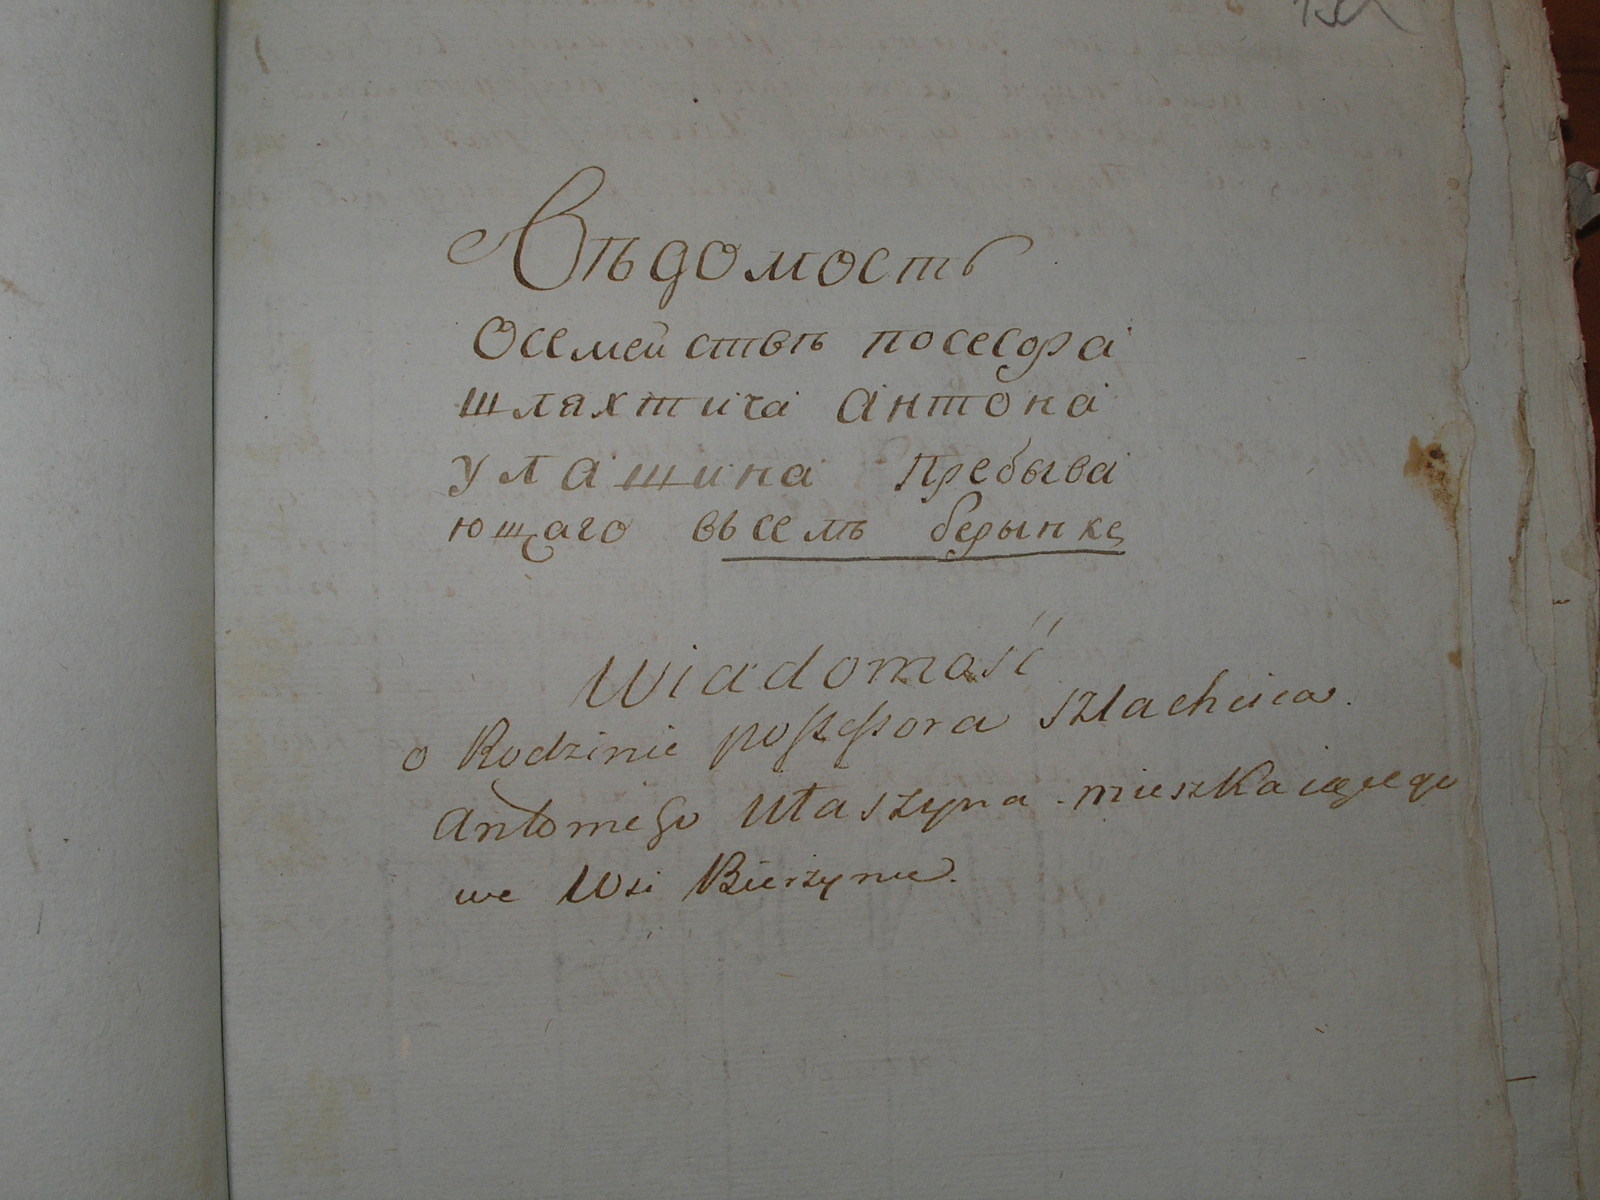 Вѣдомость
Осемействѣ посесора
шляхтича Антона
Улашина Пребыва
ющаго вьселѣ берынке
Wiadomość
o Rodzinie possessora Szlachcica.
Antoniego Ułaszyna mieszkaiącego
we Wsi Bierzynie.